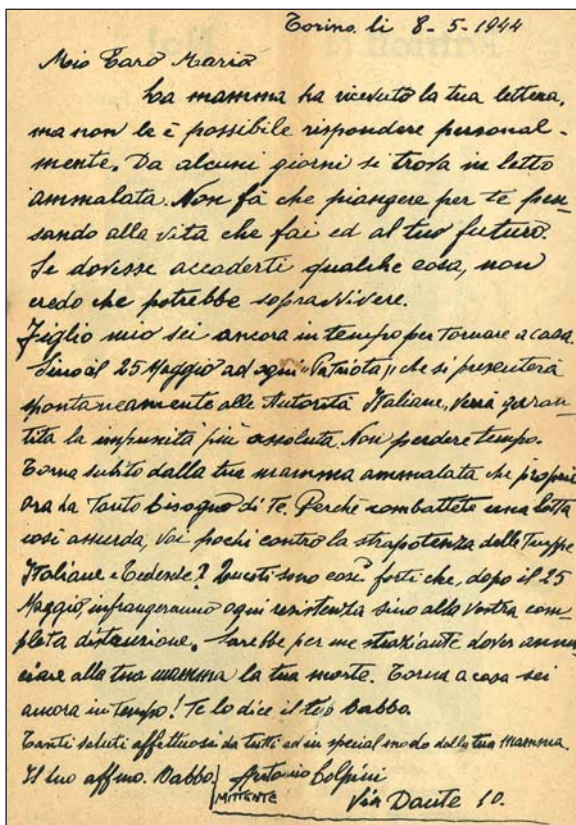 Torino li 8-5-1944
Mio Caro Mario
La mamma ha ricevuto la tua lettera,
ma non le è possibile rispondere personal-
mente. Da alcuni giorni si trova in letto
ammalata. Non fà che piangere per te pen-
sando alla vita che fai ed al tuo futuro.
Se dovesse accaderti qualche cosa, non
credo che potrebbe sopravvivere.
Figlio mio sei ancora in tempo per tornare a casa.
Sino il 25 Maggio ad ogni "Patriota" che si presenterà
spontaneamente alle Autorità Italiane, verrà garan-
tita la impunità più assoluta. Non perdere tempo.
Torna subito dalla tua mamma ammalata che proprio
ora ha tanto bisogno di Te. Perché combattete una lotta
così assurda, Voi pochi contro la strapotenza delle Truppe
Italiane e Tedesche? Questi sono così forti che, dopo il 25
Maggio, infrangeranno ogni resistenza sino alla vostra com-
pleta distruzione. Sarebbe per me straziante dover annun-
ciare alla tua mamma la tua morte. Torna a casa sei
ancora in tempo! Te lo dice il tuo Babbo.
Tanti saluti affettuosi da tutti ed in special modo dalla tua Mamma.
Il tuo affmo. Babbo. Antonio
MITTENTE Via Dante 10.